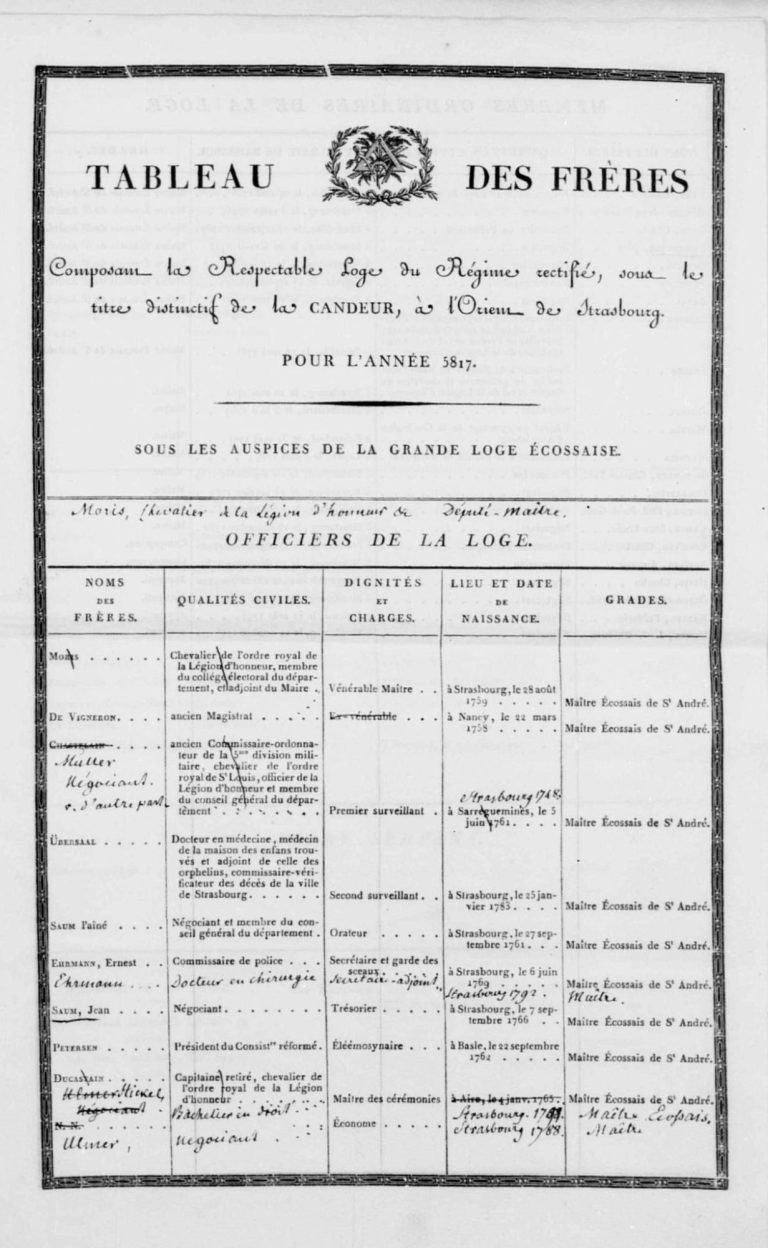 TABLEAU DES FRÈRES
Composant la Respectable Loge du Régime rectifié, sous le
titre distinctif de la CANDEUR, à l'Orient de Strasbourg.
POUR L'ANNÉE 5817.
SOUS LES AUSPICES DE LA GRANDE LOGE ÉCOSSAISE.
Moris, Chevalier de la Légion d'honneur &c Député-Maître.
OFFICIERS DE LA LOGE.
NOMS DES FRÈRES.
QUALITÉS CIVILES.
DIGNITÉS ET CHARGES.
LIEU ET DATE DE NAISSANCE.
GRADES.
Moris . . . . . .
Chevalier de l'ordre royal de
la Légion d'honneur, membre
du collége électoral du dépar-
tement, et adjoint du Maire .
Vénérable Maître . .
à Strasbourg, le 28 août
1759 . . . . .
Maître Écossais de St André.
DE VIGNERON. . . .
ancien Magistrat . . . . .
Ex-vénérable . . .
à Nancy, le 22 mars
1758 . . . . .
Maître Écossais de St André.
CHASTELAIN . . . .
Muller
Négociant.
v. d'autre part
ancien Commissaire-ordonna-
teur de la 5me division mili-
taire, chevalier de l'ordre
royal de St Louis, officier de la
Légion d'honneur et membre
du conseil général du dépar-
tement . . . . . . .
Premier surveillant .
Strasbourg 1748.
à Sarreguemines, le 5
juin 1761. . . . .
Maître Écossais de St André.
ÜBERSAAL . . . . .
Docteur en médecine, médecin
de la maison des enfans trou-
vés et adjoint de celle des
orphelins, commissaire-véri-
ficateur des décés de la ville
de Strasbourg. . . . . .
Second surveillant. .
à Strasbourg, le 25 jan-
vier 1783. . . . .
Maître Écossais de St André.
SAUM l'ainé . . . .
Négociant et membre du con-
seil général du département .
Orateur . . . . .
à Strasbourg, le 27 sep-
tembre 1761. . .
Maître Écossais de St André.
EHRMANN, Ernest . .
Commissaire de police . . .
Secrétaire et garde des
sceaux. . . . .
à Strasbourg, le 6 juin
1769 . . . . .
Maître Écossais de St André.
Ehrmann . . .
Docteur en chirurgie
Secrétaire-adjoint
Strasbourg 1792.
Maître.
SAUM, Jean . . . .
Négociant. . . . . . . .
Trésorier . . . . .
à Strasbourg, le 7 sep-
tembre 1766 . .
Maître Écossais de St André.
PETERSEN . . . . .
Président du Consistre réformé.
Éléémosynaire . . .
à Basle, le 22 septembre
1762 . . . . .
Maître Écossais de St André.
DUCASTAIN . . . . .
Capitaine retiré, chevalier de
l'ordre royal de la Légion
d'honneur . . . . . . .
Maître des cérémonies
à Aire, le 4 janv. 1765. .
Maître Écossais de St André.
Ulmer Stickel,
Négociant
Bachelier en droit
Strasbourg.
Maître Ecossais.
N. N. . . . . . .
Économe . . . . .
Ulmer,
négociant
Strasbourg 1788.
Maître